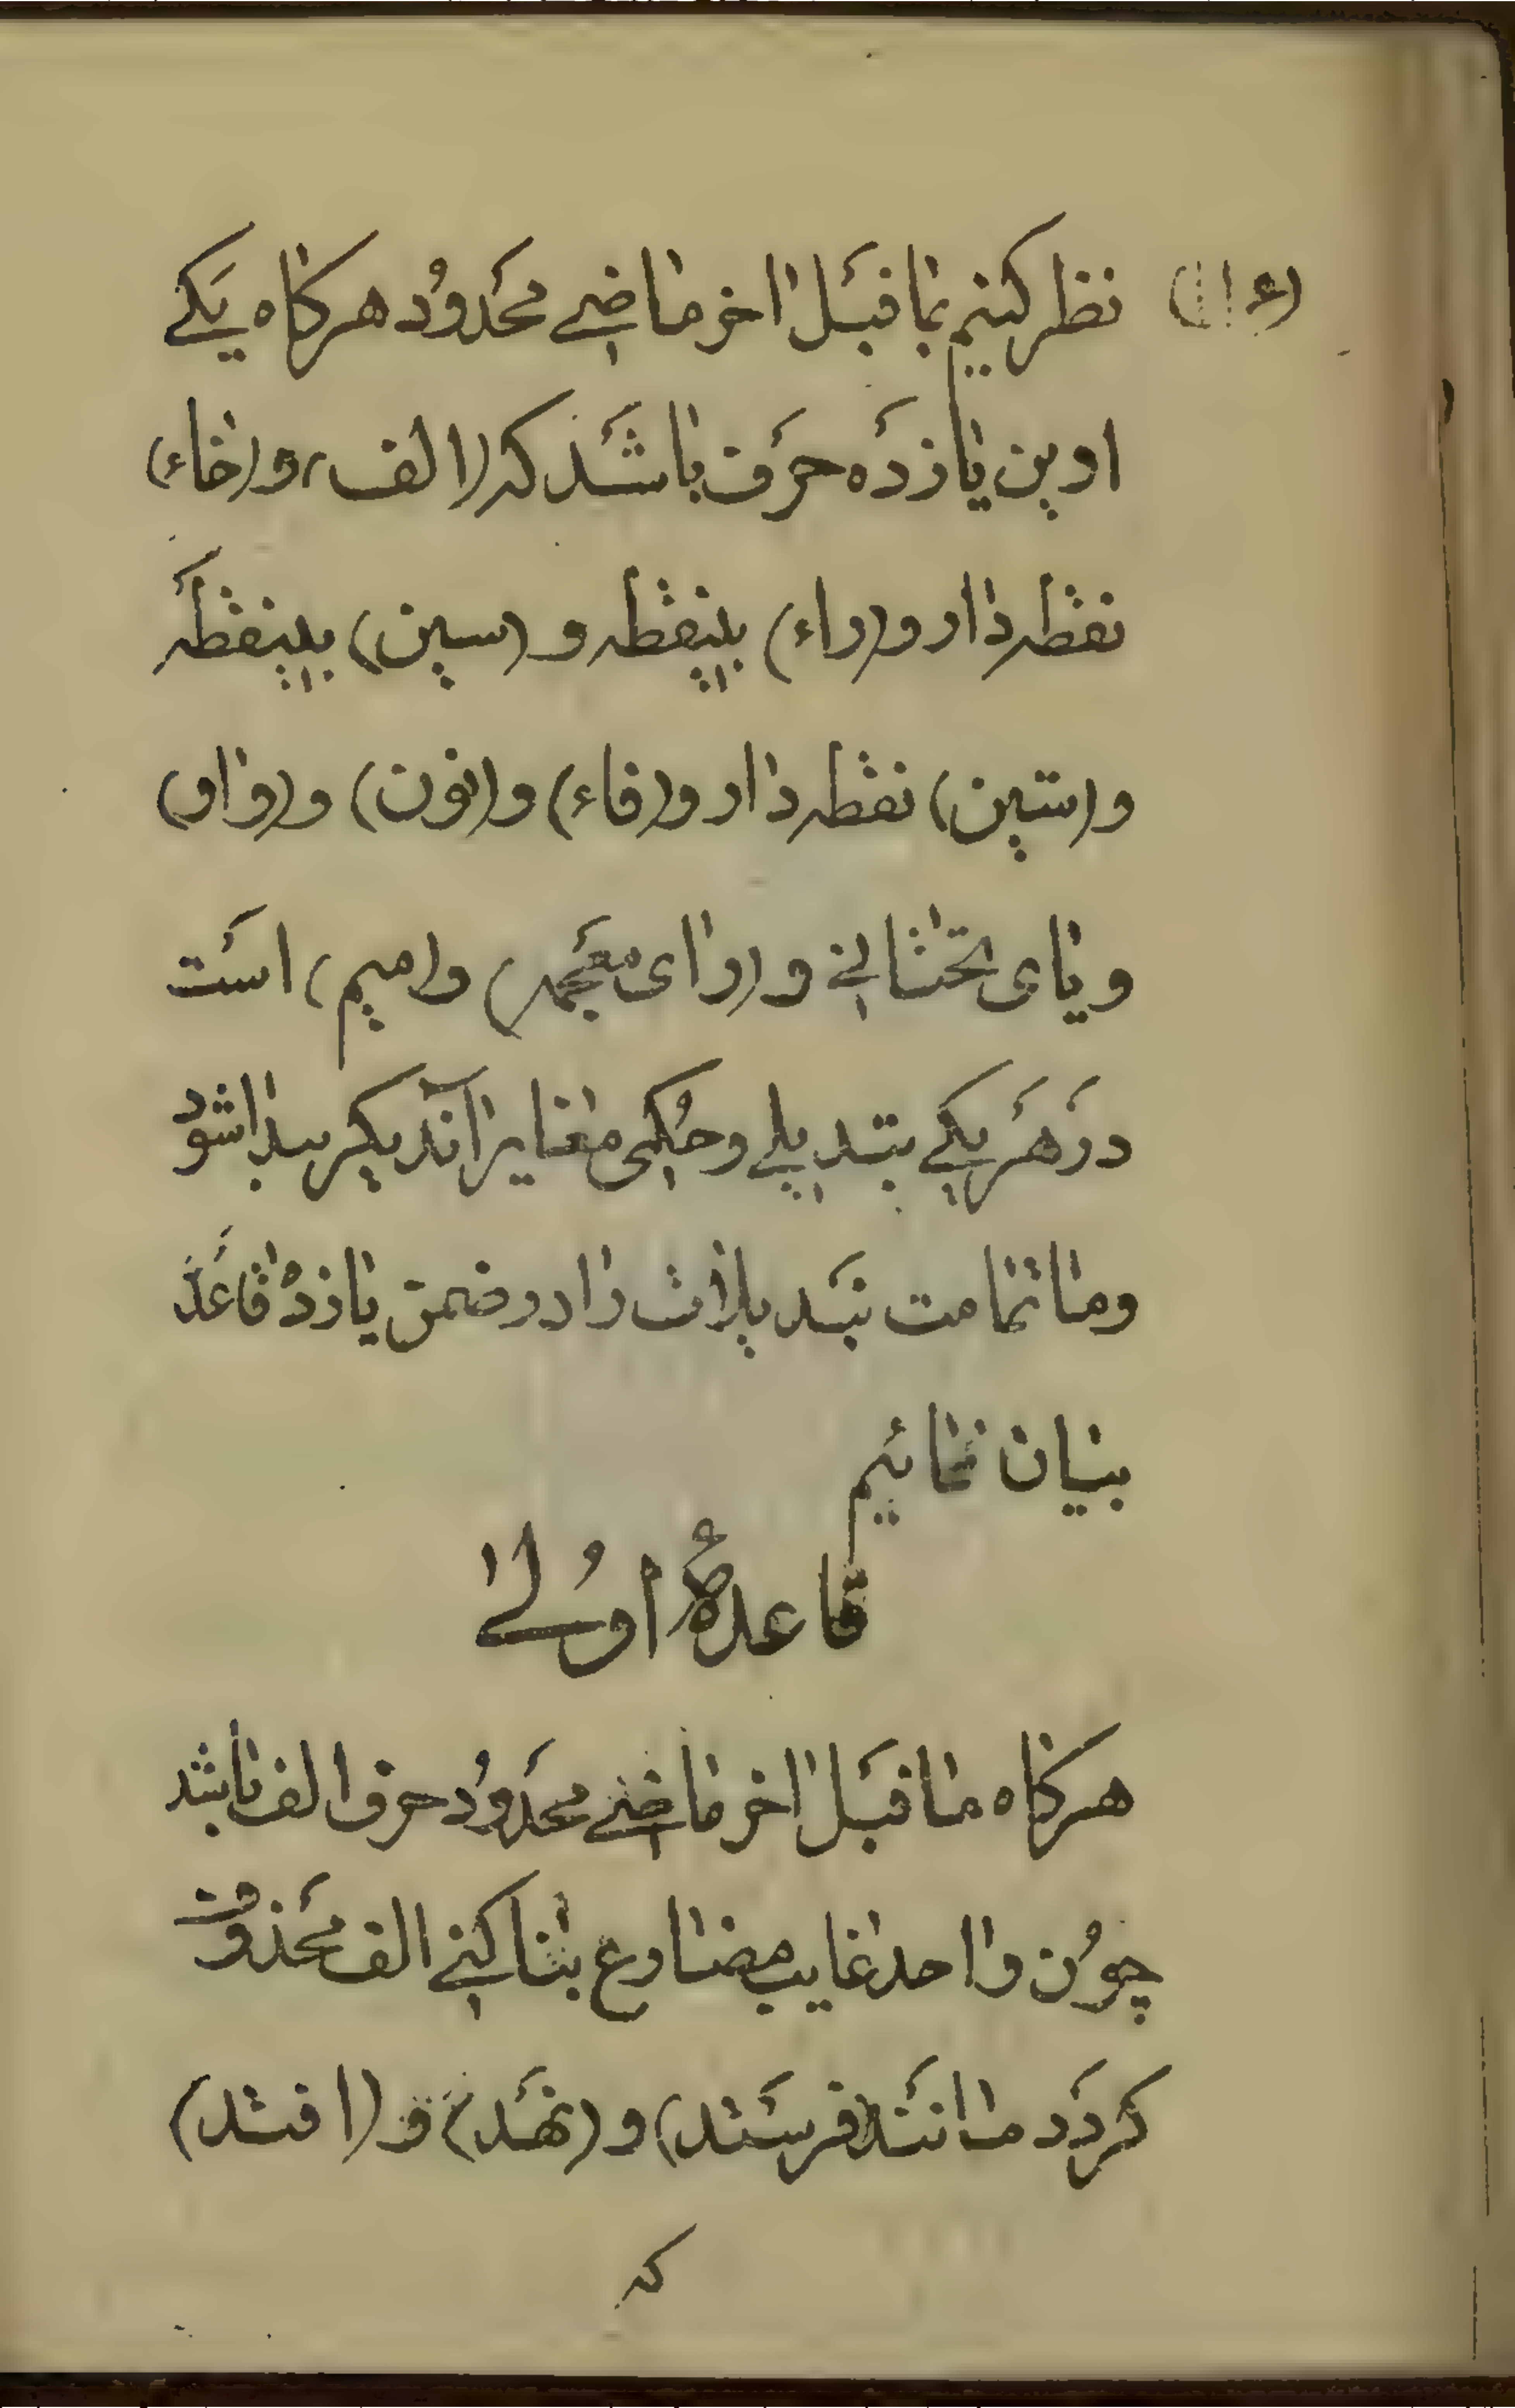 نظر کنیم بماقبل اخر ماضے محدود هرکاه یکے
ازین یازده حرف باشد که (الف) و (خاء)
نقطه دار و (راء) بینقطه و (سین) بینقطه
و (شین) نقطه دار و (فاء) و (نون) و (واو)
و یای تحتانے و (زای معجمه) و (میم) است
در هر یکے تبدیلے وحکمی مغایر آندیکر پیدا شود
وما تمامت تبدیلات را در ضمن یازده قاعده
بیان نمائیم
قاعدهٔ اولے
هرکاه ماقبل اخر ماضے محدود حرف الف باشد
چون واحد غایب مضارع بنا کنے الف محذوف
کردد مانند (فرستد) و (نهد) و (افتد)
که